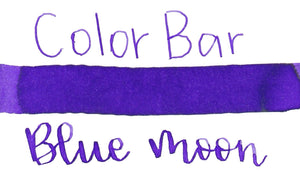 Color Bar
Blue Moon